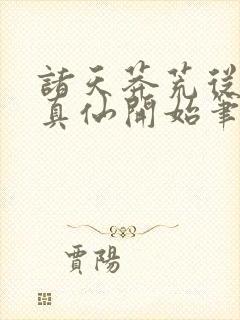 諸天莽荒從
真仙開始筆
賈陽